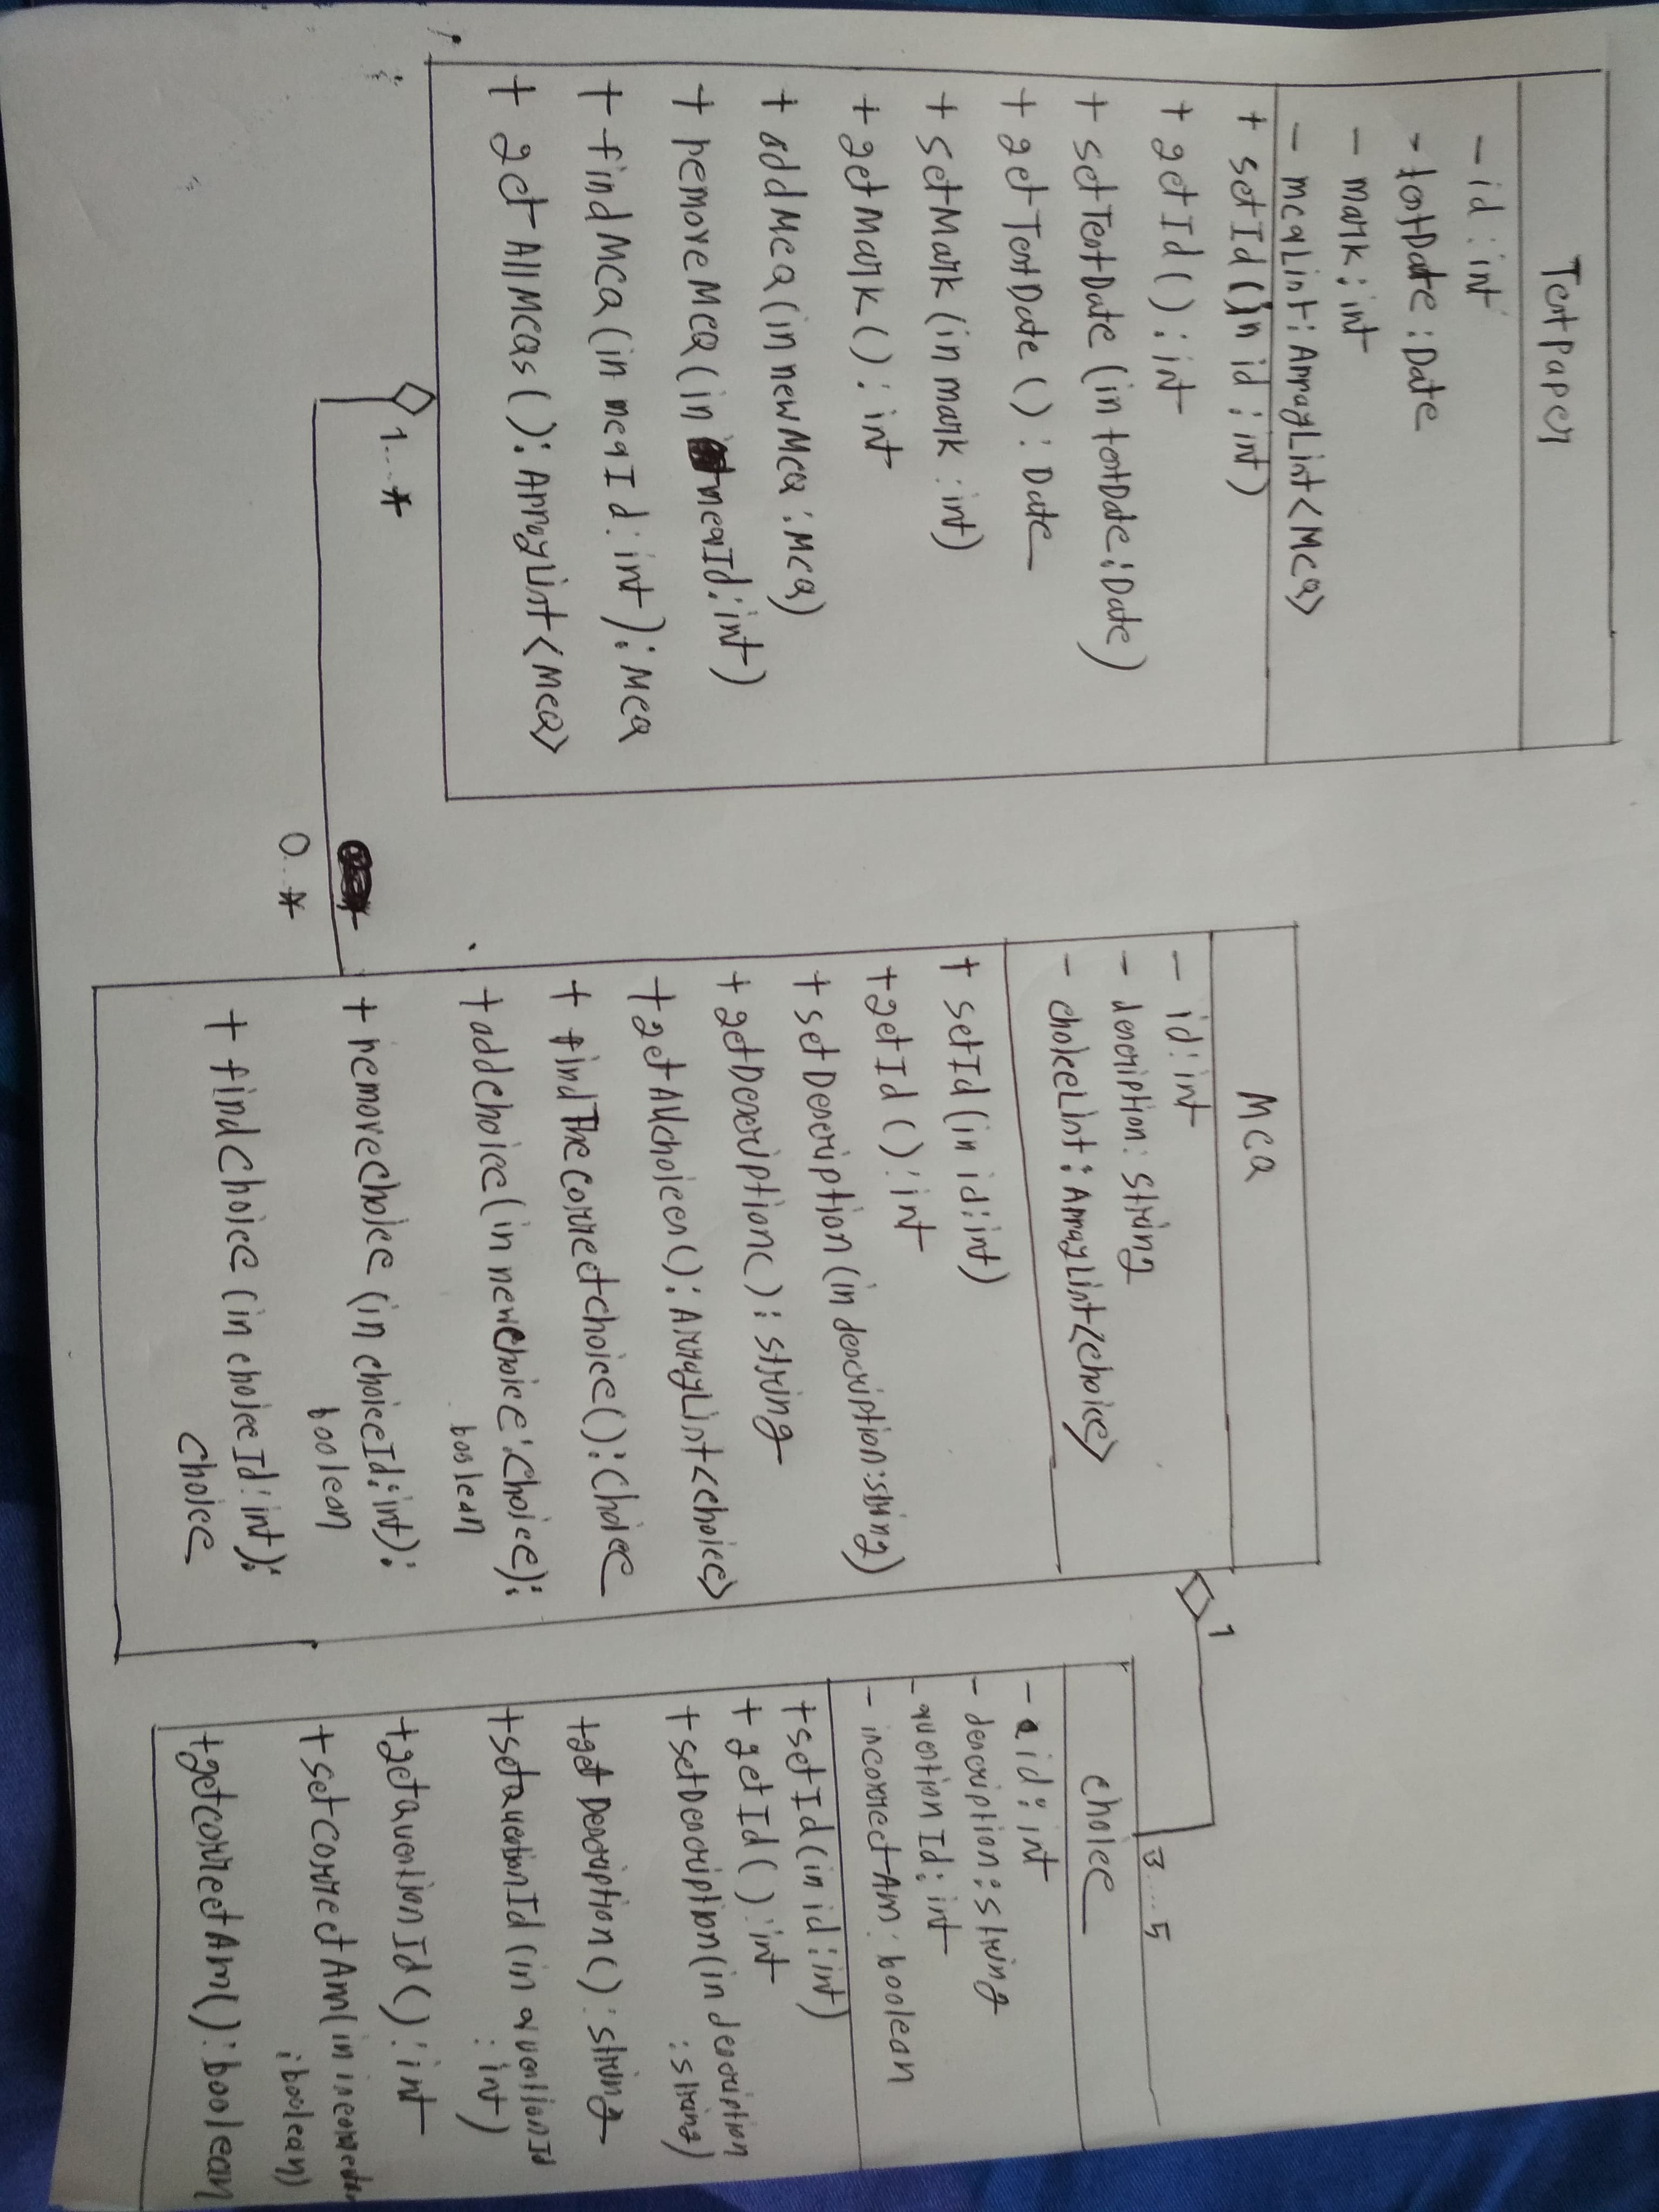 Testpaper
- id : int
- testDate : Date
- mark : int
- mcqList : ArrayList<MCQ>
+ setId (in id : int)
+ getId() : int
+ setTestDate (in testDate : Date)
+ getTestDate () : Date
+ setMark (in mark : int)
+ getMark() : int
+ addMCQ (in newMCQ : MCQ)
+ removeMCQ (in mcqId : int)
+ findMCQ (in mcqId : int) : MCQ
+ getAllMCQs () : ArrayList<MCQ>
1...*
0..*
MCQ
- id : int
- description : string
- choiceList : ArrayList<choice>
+ setId (in id : int)
+ getId () : int
+ setDescription (in description : string)
+ getDescription() : string
+ getAllchoices() : ArrayList<choice>
+ findThecorrectchoice() : Choice
+ addchoice (in newchoice : Choice) :
boolean
+ removechoice (in choiceId : int) :
boolean
+ findchoice (in choiceId : int) :
choice
1
3....5
choice
- id : int
- description : string
- questionId : int
- incorrectAns : boolean
+ setId (in id : int)
+ getId () : int
+ setDescription (in description
: string)
+ getDescription() : string
+ setquestionId (in questionId
: int)
+ getquestionId () : int
+ setcorrectAns (in
: boolean)
+ getcorrectAns() : boolean